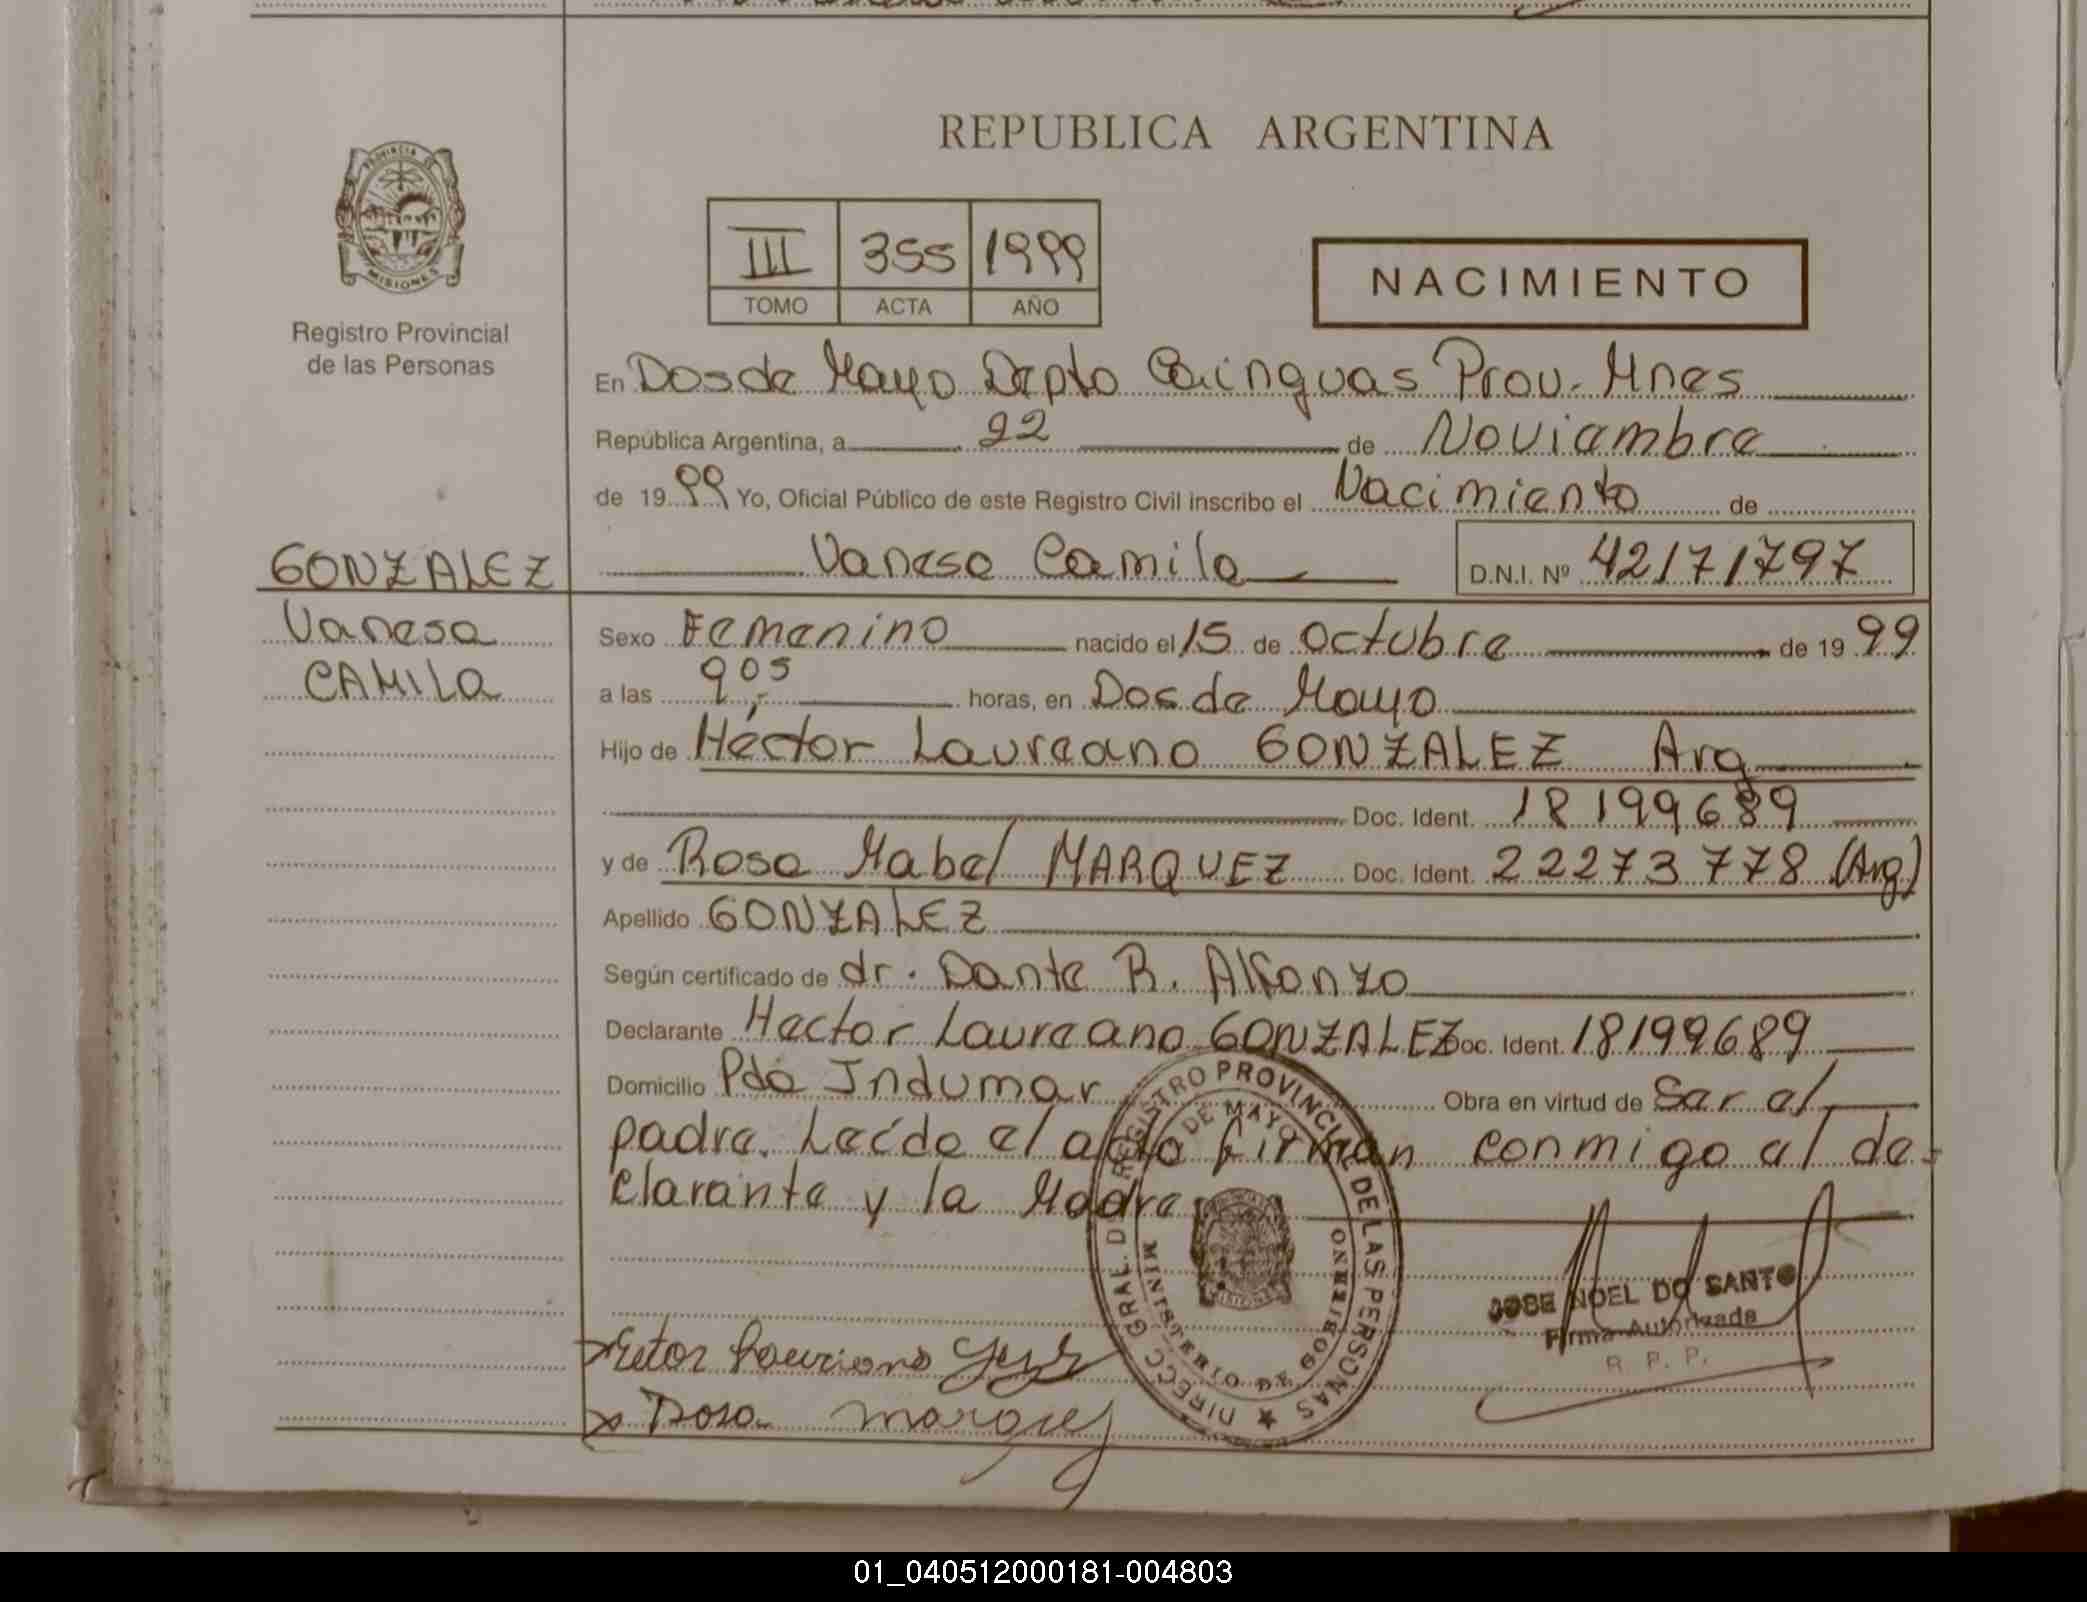 PROVINCIA DE
MISIONES
Registro Provincial
de las Personas
REPUBLICA ARGENTINA
III 355 1999
TOMO ACTA AÑO
NACIMIENTO
En Dos de Mayo Depto Cainguas Prov. Mnes
República Argentina, a 22 de Noviembre
de 1999 Yo, Oficial Público de este Registro Civil inscribo el Nacimiento de
Vanesa Camila D.N.I. Nº 42171797
GONZALEZ
Vanesa
CAMILA
Sexo Femenino nacido el 15 de Octubre de 1999
a las 9,05 horas, en Dos de Mayo
Hijo de Héctor Laureano GONZALEZ Arg
Doc. Ident. 18199689
y de Rosa Mabel MARQUEZ Doc. Ident. 22273778 (Arg)
Apellido GONZALEZ
Según certificado de dr. Dante R. Alfonzo
Declarante Hector Laureano GONZALEZ Doc. Ident. 18199689
Domicilio Pdo Indumar Obra en virtud de Ser el
padre. Leído el acta firman conmigo el de-
clarante y la Madre
DIRECC. GRAL. DEL REGISTRO PROVINCIAL DE LAS PERSONAS
DE MAYO
MINISTERIO DE GOBIERNO
JOSE NOEL DO SANTO
Firma Autorizada
R. P. P.
Rosa Marques
01_040512000181-004803